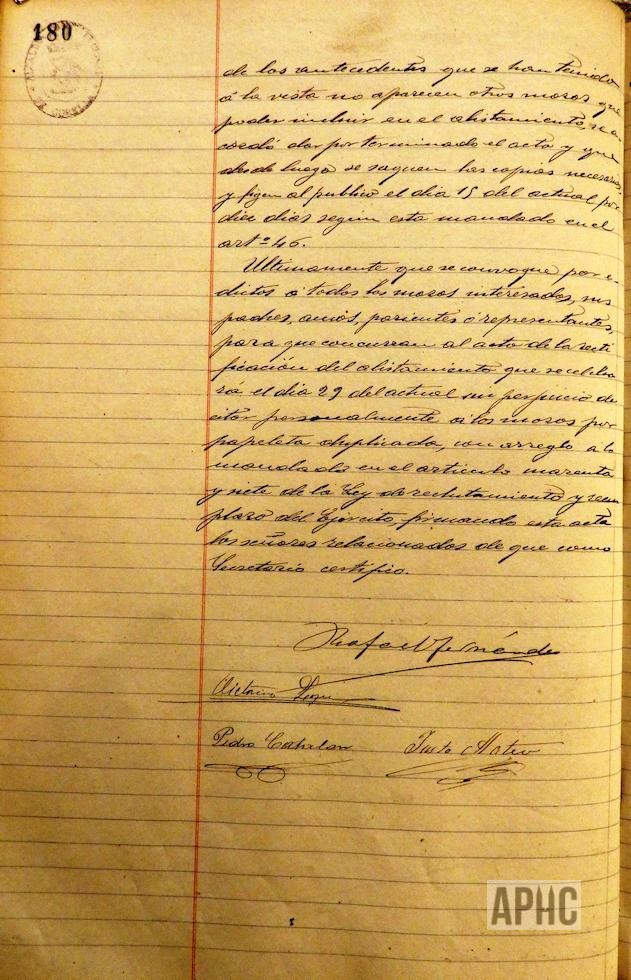 180
de los antecedentes que se han tenido
á la vista no aparecen otros mozos que
poder incluir en el alistamiento, se a
cordó dar por terminado el acto y que
desde luego se saquen las copias necesarias
y fijen al publico el dia 15 del actual por
diez dias segun esta mandado en el
artº 46.
Ultimamente que se convoque por e-
dictos á todos los mozos interesados, sus
padres, amos, parientes ó representantes,
para que concurran al acto de la recti
ficación del alistamiento que se celebra
rá el dia 29 del actual sin perjuicio de
citar personalmente á los mozos por
papeleta duplicada, con arreglo a lo
mandado en el artículo cuarenta
y siete de la Ley de reclutamiento y reem
plazo del Ejército, firmando esta acta
los señores relacionados de que como
Secretario certifico.
Rafael Fernández
Pedro Catalan Justo Mateo
APHC